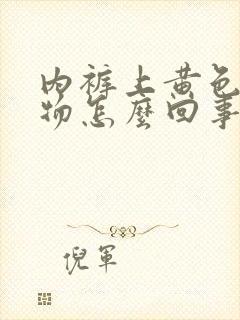 内裤上黄色
物怎麼回事
倪军